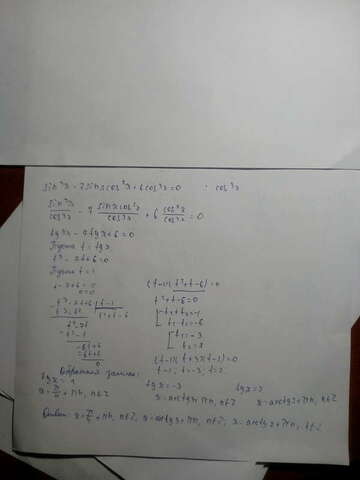 sin³x - 7sinxcos²x + 6cos³x = 0 : cos³x
sin³x/cos³x - 7 sinxcos²x/cos³x + 6 cos³x/cos³x = 0
tg³x - 7tgx + 6 = 0
Пусть t = tgx
t³ - 7t + 6 = 0
Пусть t = 1
1 - 7 + 6 = 0
0 = 0
t³ - 7t + 6 | t - 1
t³ - t² | t² + t - 6
t² - 7t
t² - t
-6t + 6
-6t + 6
0
(t-1)(t² + t - 6) = 0
t² + t - 6 = 0
t₁ + t₂ = -1
t₁ · t₂ = -6
t₁ = -3
t₂ = 2
(t-1)(t+3)(t-2) = 0
t = 1; t = -3; t = 2
Обратная замена:
tgx = 1 tgx = -3 tgx = 2
x = π/4 + πn, n∈Z x = -arctg3 + πn, n∈Z x = arctg2 + πn, n∈Z
Ответ: x = π/4 + πn, n∈Z; x = -arctg3 + πn, n∈Z; x = arctg2 + πn, n∈Z